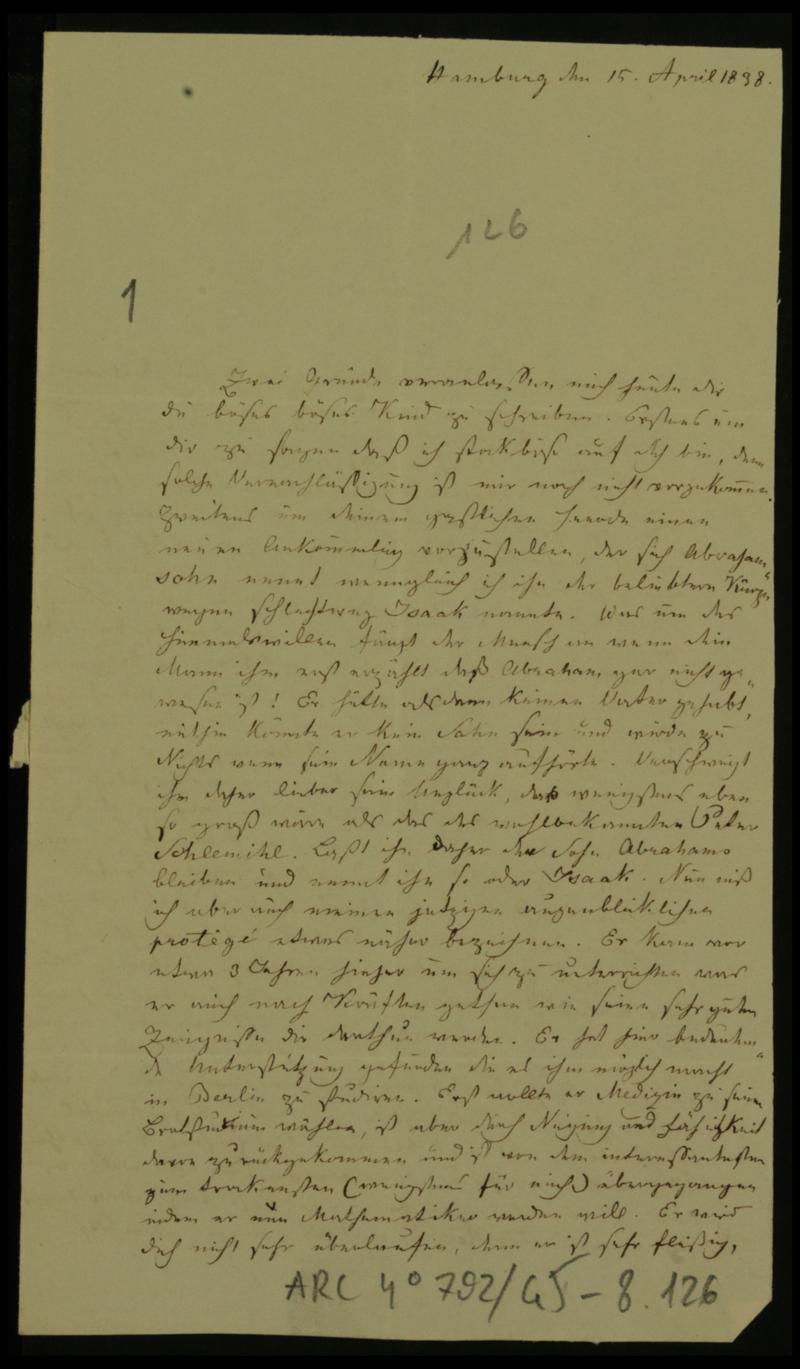 Hamburg den 15. April 1838.
126
1
Zwei Gründe veranlassen mich heute dir
du böses böses Kind zu schreiben. Erstens um
dir zu sagen daß ich stockböse auf dich bin, denn
solche Vernachlässigung ist mir noch nicht vorgekommen.
Zweitens um deinem gastlichen Heerde einen
neuen Ankömmling vorzustellen, der sich Abraham-
sohn nennt wenngleich ich ihn der beliebten Kürze
wegen schlechtweg Isaak nannte. Was um des
Himmelswillen fängt der Mensch an wenn dein
Mann ihm erst erzählt daß Abraham gar nicht ge-
wesen ist! Er hätte alsdann keinen Vater gehabt,
mithin könnte er kein Sohn sein und würde zu
Nichts wenn sein Name ganz aufhörte. Verschweigt
ihm daher lieber sein Unglück, das wenigstens eben
so groß wäre als das des wohlbekannten Peter
Schlemihl. Laßt ihn daher den Sohn Abrahams
bleiben und nennt ihn so oder Isaak. Nun muß
ich aber auch meinen jetzigen augenblicklichen
protégé etwas näher bezeichnen. Er kam vor
etwa 3 Jahren hieher um sich zu unterrichten was
er auch nach Kräften gethan wie seine sehr guten
Zeugnisse dir darthun werden. Er hat hier bedeuten-
de Unterstützung gefunden die es ihm möglich macht
in Berlin zu studiren. Erst wollte er Medizin zu seinem
Brotstudium wählen, ist aber durch Neigung und Fähigkeit
davon zurückgekommen und ist von dem interessantesten
zum trockensten (wenigstens für mich) übergegangen
indem er nun Mathematiker werden will. Er wird
dich nicht sehr überlaufen, denn er ist sehr fleißig,
ARC 4° 792/G5-8.126